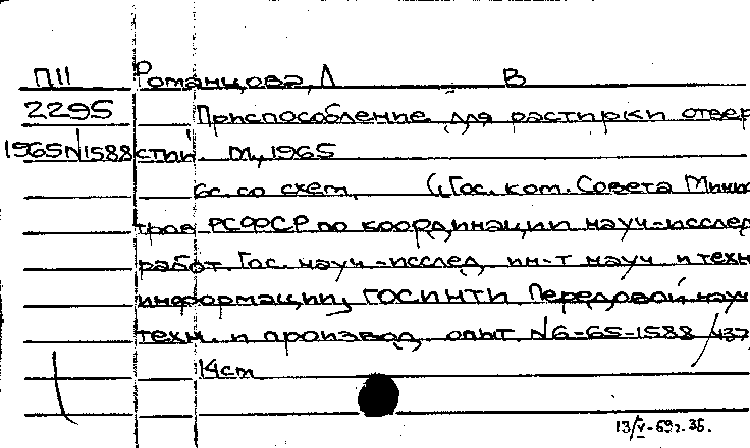 П11 Романцова, Л В
2295 Приспособление для растирки отвер
1965N1588 стий. М, 1965
6с. со схем. (Гос. ком. Совета Минис
тров РСФСР по координации науч-исслед
работ. Гос. науч-исслед. ин-т науч. и техн
информации, ГОСИНТИ. Передовой науч
техн. и производ. опыт. N6-65-1588/437
14cm
13/V-69г. 36.